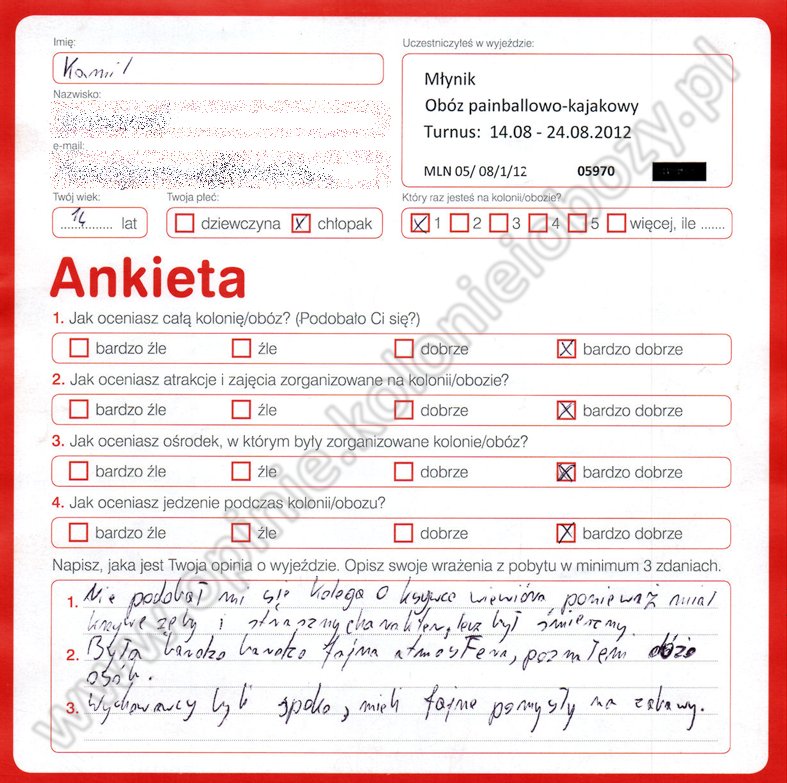 Imię:
Kamil
Nazwisko:
e-mail:
Twój wiek:
14 lat
Twoja płeć:
dziewczyna x chłopak
Uczestniczyłeś w wyjeździe:
Młynik
Obóz painballowo-kajakowy
Turnus: 14.08 - 24.08.2012
MLN 05/ 08/1/12 05970
Który raz jesteś na kolonii/obozie?
x 1 2 3 4 5 więcej, ile .......
Ankieta
1. Jak oceniasz całą kolonię/obóz? (Podobało Ci się?)
bardzo źle źle dobrze x bardzo dobrze
2. Jak oceniasz atrakcje i zajęcia zorganizowane na kolonii/obozie?
bardzo źle źle dobrze x bardzo dobrze
3. Jak oceniasz ośrodek, w którym były zorganizowane kolonie/obóz?
bardzo źle źle dobrze x bardzo dobrze
4. Jak oceniasz jedzenie podczas kolonii/obozu?
bardzo źle źle dobrze x bardzo dobrze
Napisz, jaka jest Twoja opinia o wyjeździe. Opisz swoje wrażenia z pobytu w minimum 3 zdaniach.
1. Nie podobał mi się kolega o ksywce wiewióra ponieważ miał
krzywe zęby i straszny charakter, lecz był śmieszny.
2. Była bardzo bardzo fajna atmosfera, poznałem dóżo
osób.
3. Wychowawcy byli spoko, mieli fajne pomysły na zabawy.
www.opinie.kolonieiobozy.pl